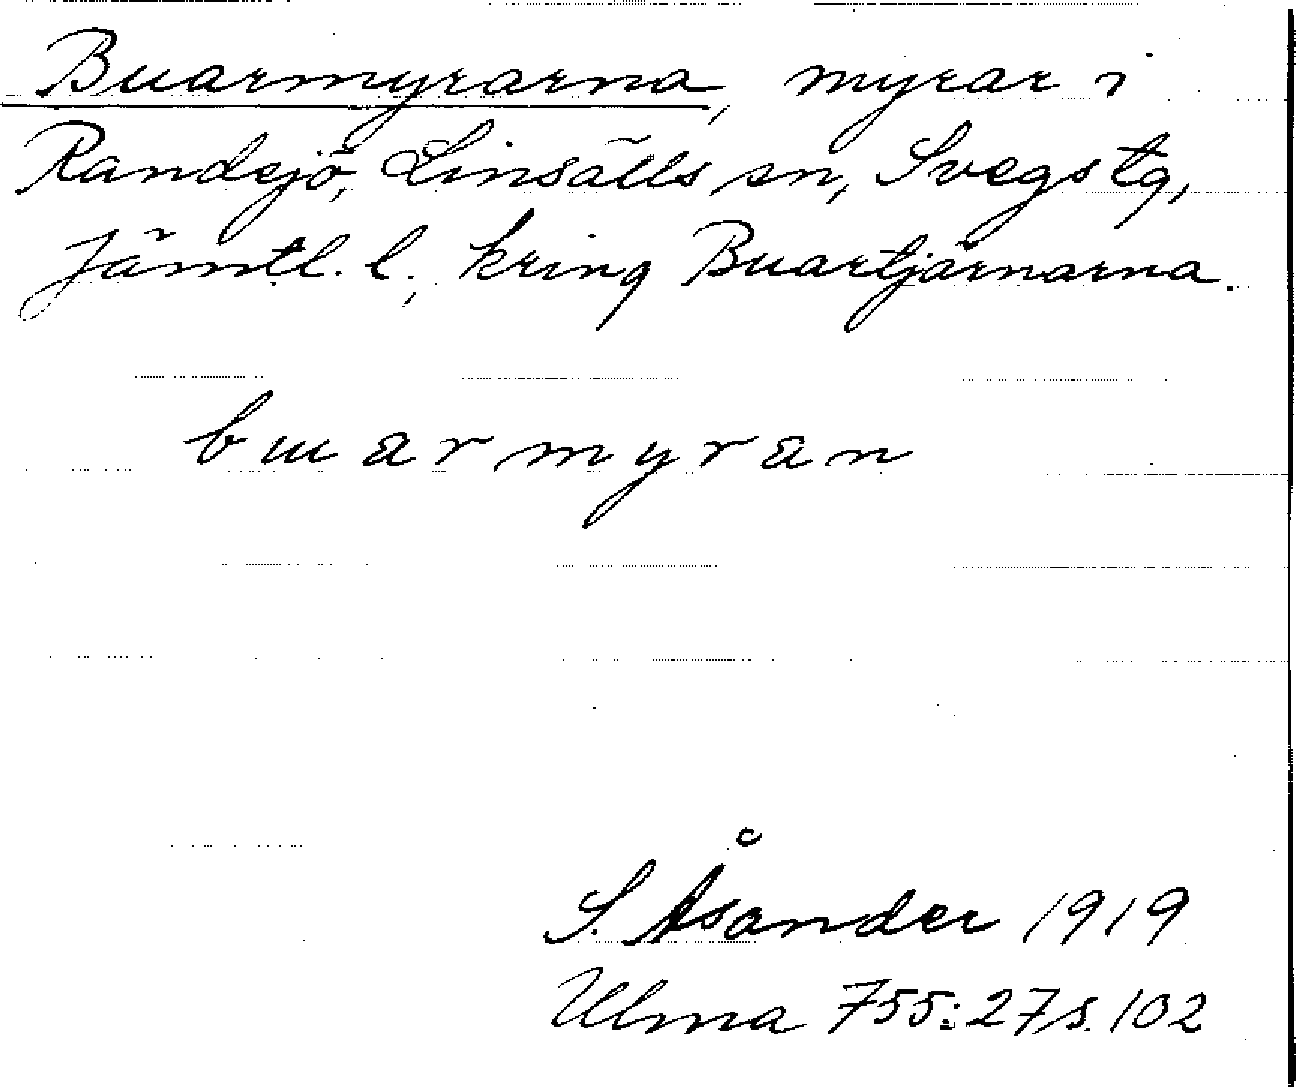 Buarmyrarna, myrar i
Randsjö, Linsälls sn, Svegs tg,
Jämtl. l., kring Buartjärnarna.
buarmyran
S. Åsander 1919
Ulma 755:27 s. 102